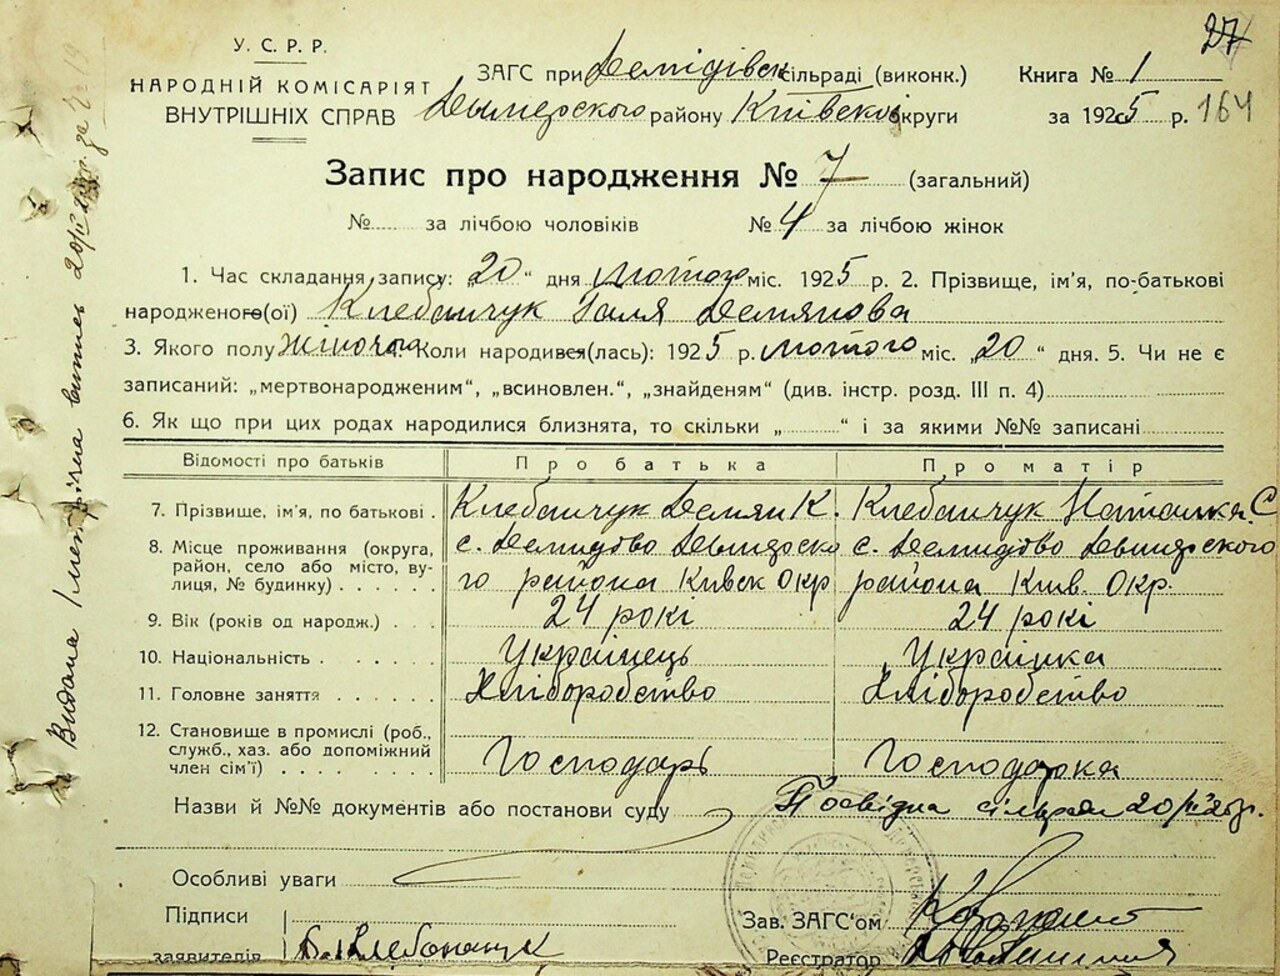 27
У. С. Р. Р.
НАРОДНІЙ КОМІСАРІЯТ
ВНУТРІШНІХ СПРАВ
ЗАГС при Демідівск сільраді (виконк.)
Димерского району Київскої округи
Книга № 1
за 1925 р. 164
Запис про народження № 7 (загальний)
№ за лічбою чоловіків № 4 за лічбою жінок
1. Час складання запису: „20“ дня лютого міс. 1925 р. 2. Прізвище, ім'я, по-батькові
народженого(ої) Клебанчук Галя Демянова
3. Якого полу жіночого. Коли народився(лась): 1925 р. лютого міс. „20“ дня. 5. Чи не є
записаний: „мертвонародженим“, „всиновлен.“, „знайденям“ (див. інстр. розд. III п. 4)
6. Як що при цих родах народилися близнята, то скільки „ “ і за якими №№ записані
Відомості про батьків Про батька Про матір
7. Прізвище, ім'я, по батькові . Клебанчук Демян К. Клебанчук Наталка С
8. Місце проживання (округа, район, село або місто, вулиця, № будинку) . . . . . .
с. Демидово Дымерско
го района Киевск Окр
с. Демидово Дымерского
района Киев. Окр.
9. Вік (років од народж.) . . . 24 рокі 24 рокі
10. Національність . . . . . Українець Українка
11. Головне заняття . . . . . Хліборобство Хліборобство
12. Становище в промислі (роб.,
служб., хаз. або допоміжний
член сім'ї) . . . . . . Господарь Господарка
Назви й №№ документів або постанови суду Посвідка сільради 20/II 25 р.
Особливі уваги
Підписи
заявителів
Зав. ЗАГС'ом
Реєстратор
Видана метрічна випись 20/II